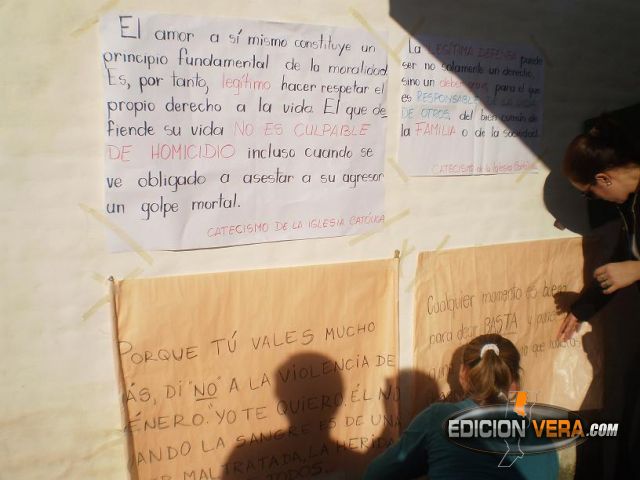 El amor a sí mismo constituye un
principio fundamental de la moralidad.
Es, por tanto, legítimo hacer respetar el
propio derecho a la vida. El que de
fiende su vida NO ES CULPABLE
DE HOMICIDIO incluso cuando se
ve obligado a asestar a su agresor
un golpe mortal.
CATECISMO DE LA IGLESIA CATÓLICA
La LEGÍTIMA DEFENSA puede
ser no solamente un derecho,
sino un deber grave, para el que
es RESPONSABLE DE LA VIDA
DE OTROS, del bien común de
la FAMILIA o de la sociedad.
CATECISMO de la IGLESIA CATÓLICA
PORQUE TÚ VALES MUCHO
ÁS, DI "NO" A LA VIOLENCIA DE
ÉNERO. "YO TE QUIERO, ÉL NO
ANDO LA SANGRE ES DE UNA
MALTRATADA, LA HERIDA
TODOS...
Cualquier momento es bueno
para decir BASTA y
que
EDICION VERA.COM